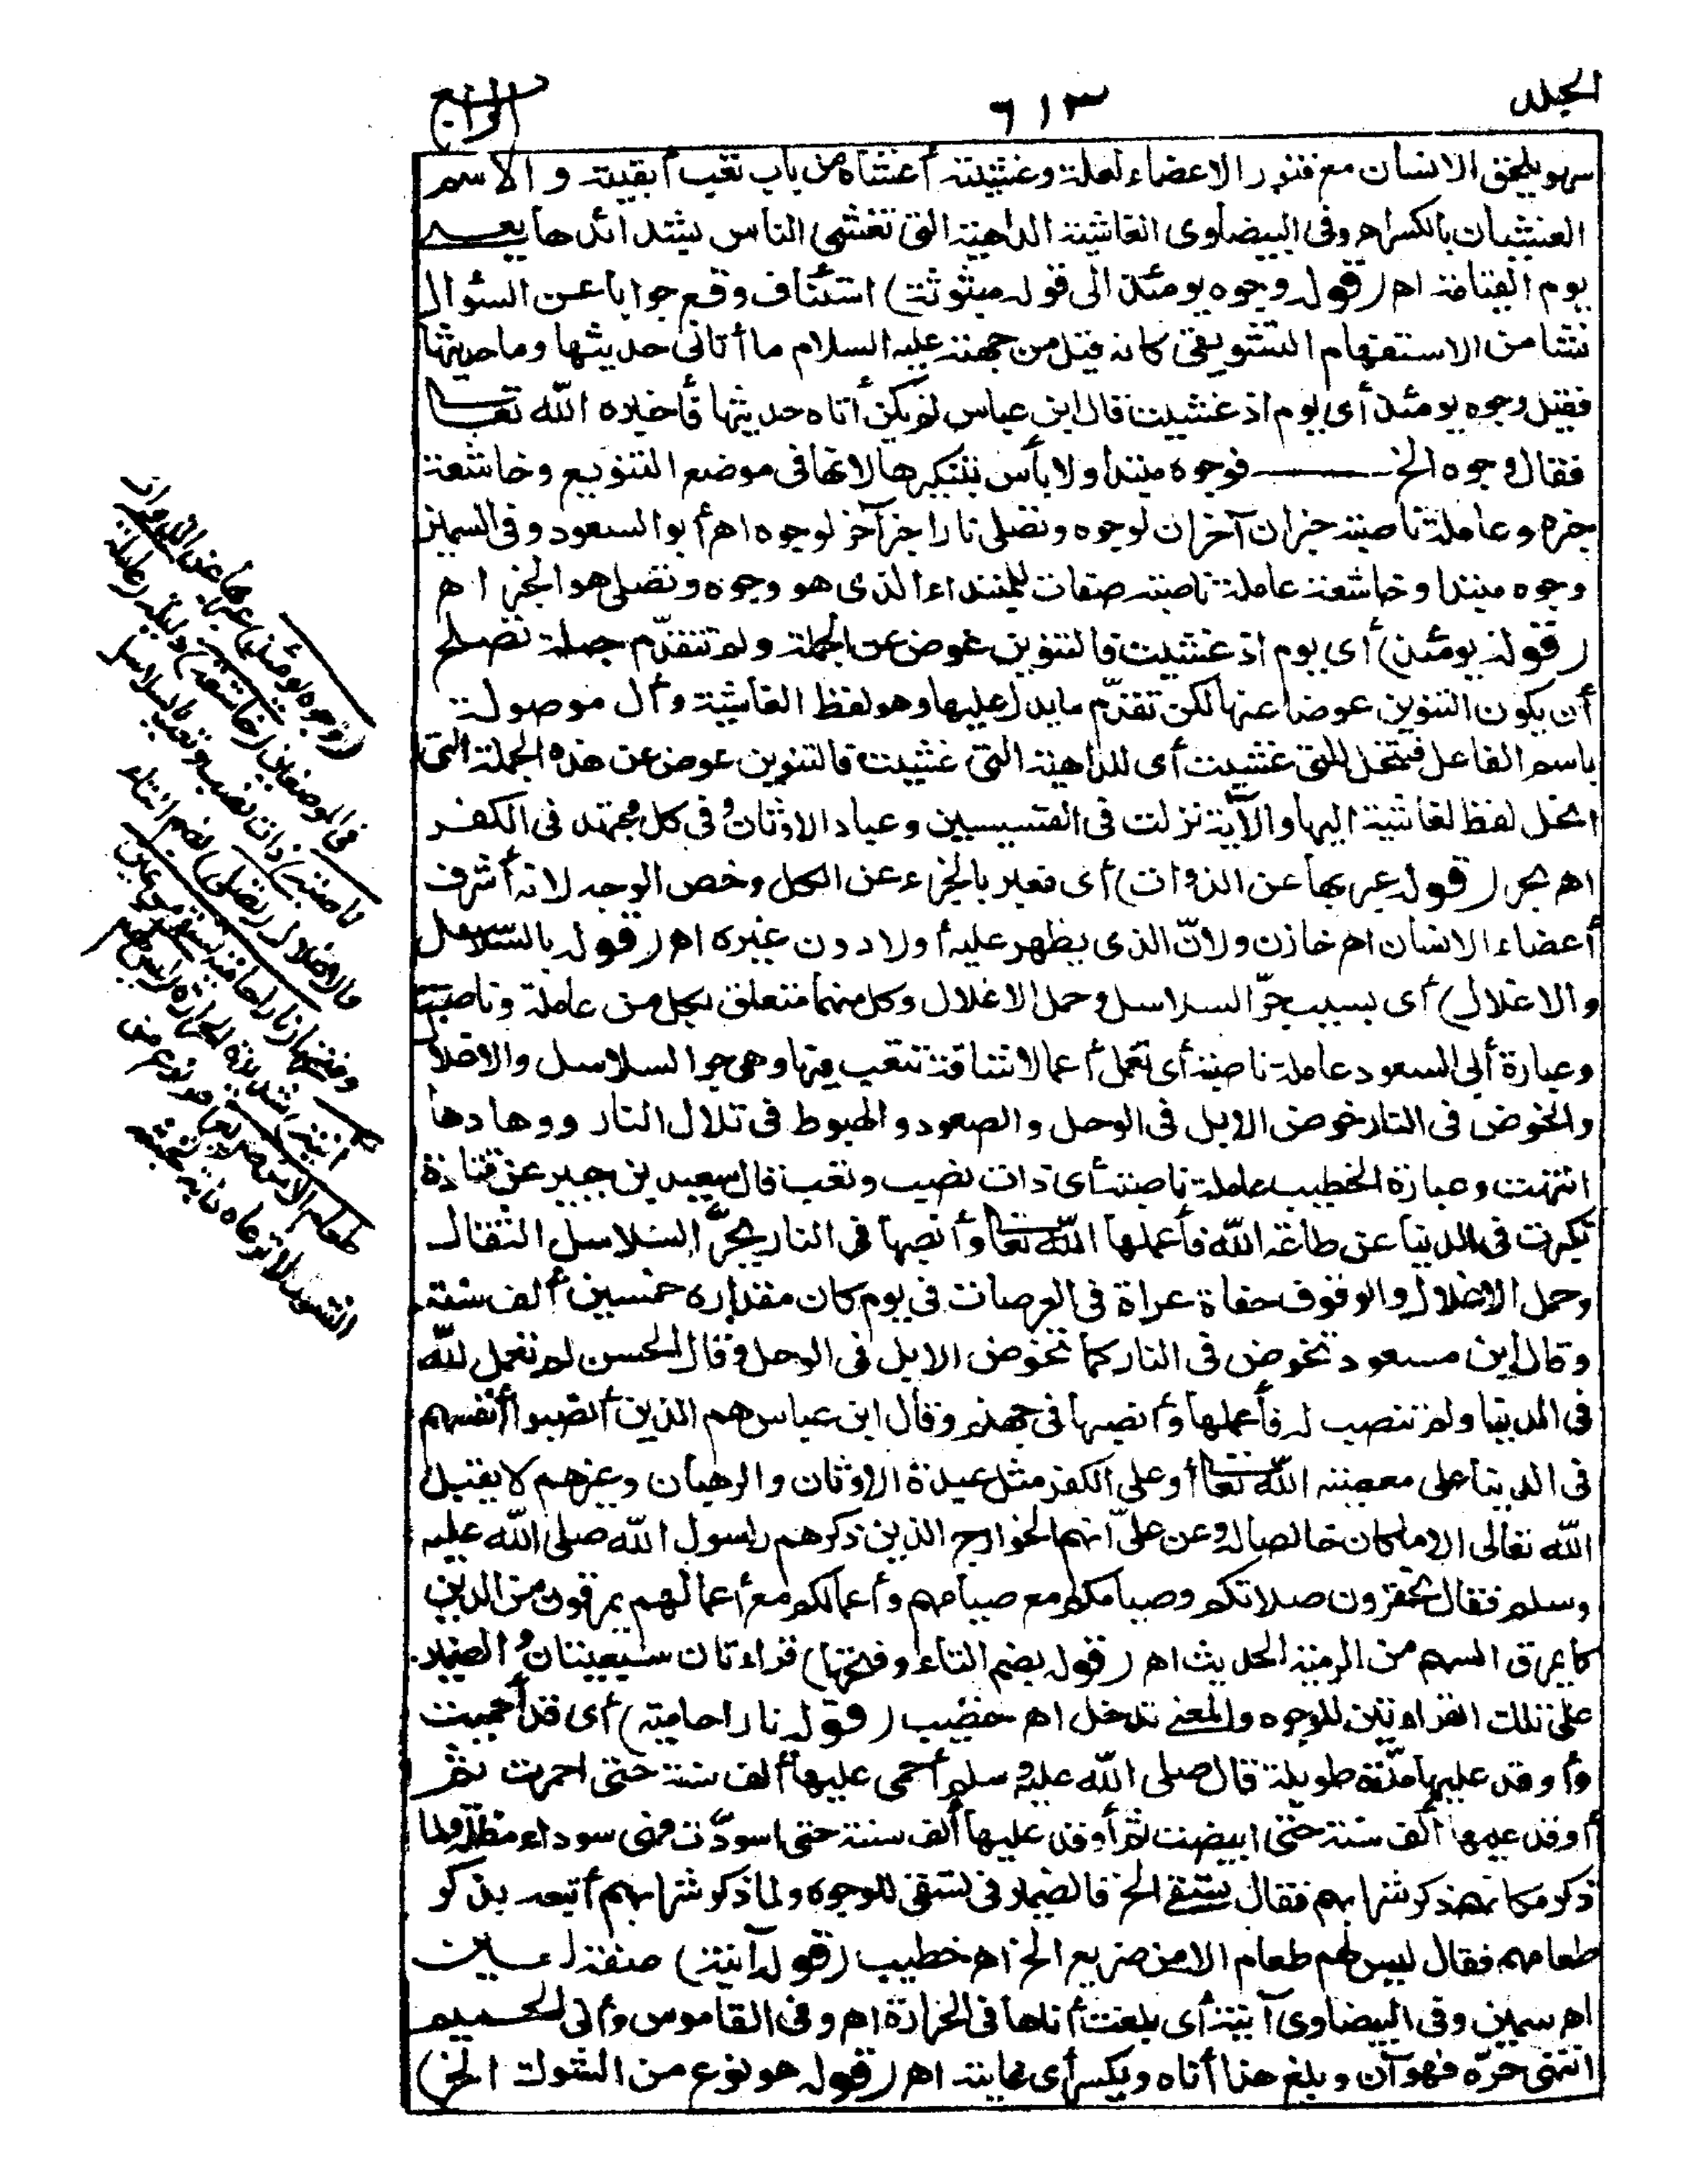 الجلد
٦١٣
الرابع
سهو يلحق الانسان مع فتور الاعضاء لعلة وغشيته أغشاه من باب تعب أبقيته والاسم
الغشيان بالكسر اه وفى البيضاوى الغاشية الداهية التى تغشى الناس بشدائدها يعنى
يوم القيامة اه (قوله وجوه يومئذ الى قوله مبثوثة) استئناف وقع جوابا عن السئوال
نشا من الاستفهام التشويقى كانه قيل من جهته عليه السلام ما أتانى حديثها وما حديثها
فقيل وجوه يومئذ أى يوم اذ غشيت قال ابن عباس لم يكن أتاه حديثها فأخبره الله تعالى
فقال وجوه الخ فوجوه مبتدأ ولا بأس بتنكيرها لانها فى موضع التنويع وخاشعة
خبره وعاملة ناصبة خبران آخران لوجوه وتصلى نارا خبر آخر لوجوه اه أبو السعود وفى السمين
وجوه مبتدا وخاشعة عاملة ناصبة صفات للمبتداء الذى هو وجوه وتصلى هو الخبر اه
(قوله يومئذ) أى يوم اذ غشيت فالتنوين عوض عن الجملة ولم تتقدّم جملة تصلح
أن يكون التنوين عوضا عنها لكن تقدّم ما يدل عليها وهو لفظ الغاشية وأل موصولة
باسم الفاعل فينحل للتى غشيت أى للداهية التى غشيت فالتنوين عوض عن هذه الجملة التى
انحل لفظ الغاشية اليها والآية نزلت فى القسيسين وعباد الاوثان وفى كل مجتهد فى الكفر
اه بحر (قوله عبر بها عن الذوات) أى فعبر بالجزء عن الكل وخص الوجه لانه أشرف
أعضاء الانسان اه خازن ولانّ الذى يظهر عليه أولا دون غيره اه (قوله بالسلاسل
والاغلال) أى بسبب جرّ السلاسل وحمل الاغلال وكل منهما متعلق بكل من عاملة وناصبة
وعبارة أبى السعود عاملة ناصبة أى تعمل أعمالا شاقة تتعب فيها وهى جر السلاسل والاغلال
والخوض فى النار خوض الابل فى الوحل والصعود والهبوط فى تلال النار ووهادها
انتهت وعبارة الخطيب عاملة ناصبة أى ذات نصب وتعب قال سعيد بن جبير عن قتادة
تكبرت فى الدنيا عن طاعة الله فأعملها الله تعالى وأنصبها فى النار بجرّ السلاسل الثقال
وحمل الاغلال والوقوف حفاة عراة فى العرصات فى يوم كان مقداره خمسين ألف سنة
وقال ابن مسعود تخوض فى النار كما تخوض الابل فى الوحل وقال الحسن لم تعمل لله
فى الدنيا ولم تنصب له فأعملها وأنصبها فى جهنم وقال ابن عباس هم الذين أنصبوا أنفسهم
فى الدنيا على معصية الله تعالى أو على الكفر مثل عبدة الاوثان والرهبان وغيرهم لا يقبل
الله تعالى الا ما كان خالصا له وعن علىّ انهم الخوارج الذين ذكرهم رسول الله صلى الله عليه
وسلم فقال تحقرون صلاتكم وصيامكم مع صيامهم وأعمالكم مع أعمالهم يمرقون من الدين
كما يمرق السهم من الرمية الحديث اه (قوله بضم التاء وفتحها) قراءتان سبعيتان والضمير
على تلك القراءتين للوجوه والمعنى تدخل اه خطيب (قوله نارا حامية) أى قد أحميت
وأوقد عليها مدّة طويلة قال صلى الله عليه وسلم أحمى عليها ألف سنة حتى احمرت ثم
أوقد عليها ألف سنة حتى ابيضت ثم أوقد عليها ألف سنة حتى اسودّت فهى سوداء مظلمة ولما
ذكر مكانهم ذكر شرابهم فقال تسقى الخ فالضمير فى تسقى للوجوه ولما ذكر شرابهم أتبعه بذكر
طعامهم فقال ليس لهم طعام الا من ضريع الخ اه خطيب (قوله آنية) صفة لعين
اه سمين وفى البيضاوى آنية أى بلغت أناها فى الحرارة اه وفى القاموس وأنى الحميم
انتهى حرّه فهو آن وبلغ هذا أناه ويكسر أى غايته اه (قوله هو نوع من الشوك الخ)
(وجوه يومئذ) عبر بها عن الذوات
فى الموضعين (خاشعة) ذليلة (عاملة
ناصبة) ذات نصب وتعب بالسلاسل
والاغلال (تصلى) بضم التاء
وفتحها (نارا حامية تسقى من عين
آنية) شديدة الحرارة (ليس لهم
طعام الا من ضريع) هو نوع من
الشوك لا ترعاه دابة لخبثه